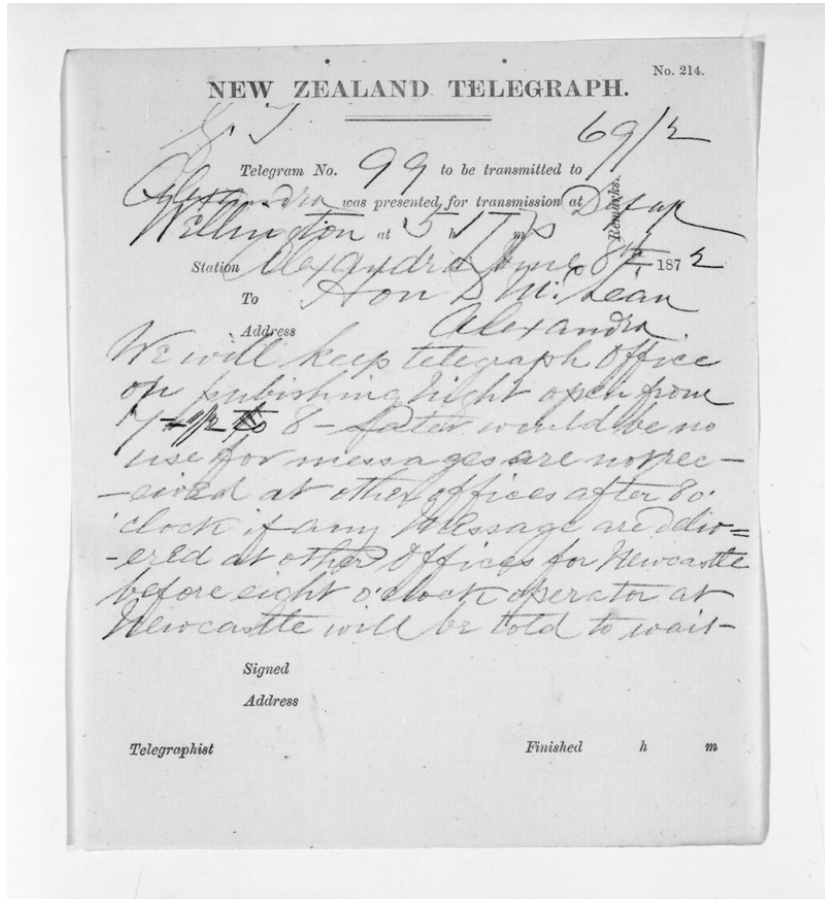 No. 214.
NEW ZEALAND TELEGRAPH.
69/2
Telegram No. 99 to be transmitted to
Alexandra was presented for transmission at
Remarks.
Wellington at 5 h 17 m p
Station Alexandra June 8th 1872
To Hon D McLean
Address Alexandra.
We will keep telegraph Office
on publishing night open from
7 to 8 - Later would be no
use for messages are not rec-
-eived at other offices after 8 o'
clock if any Message are deliv=
-ered at other Offices for Newcastle
before eight o'clock operator at
Newcastle will be told to wait-
Signed
Address
Telegraphist Finished h m